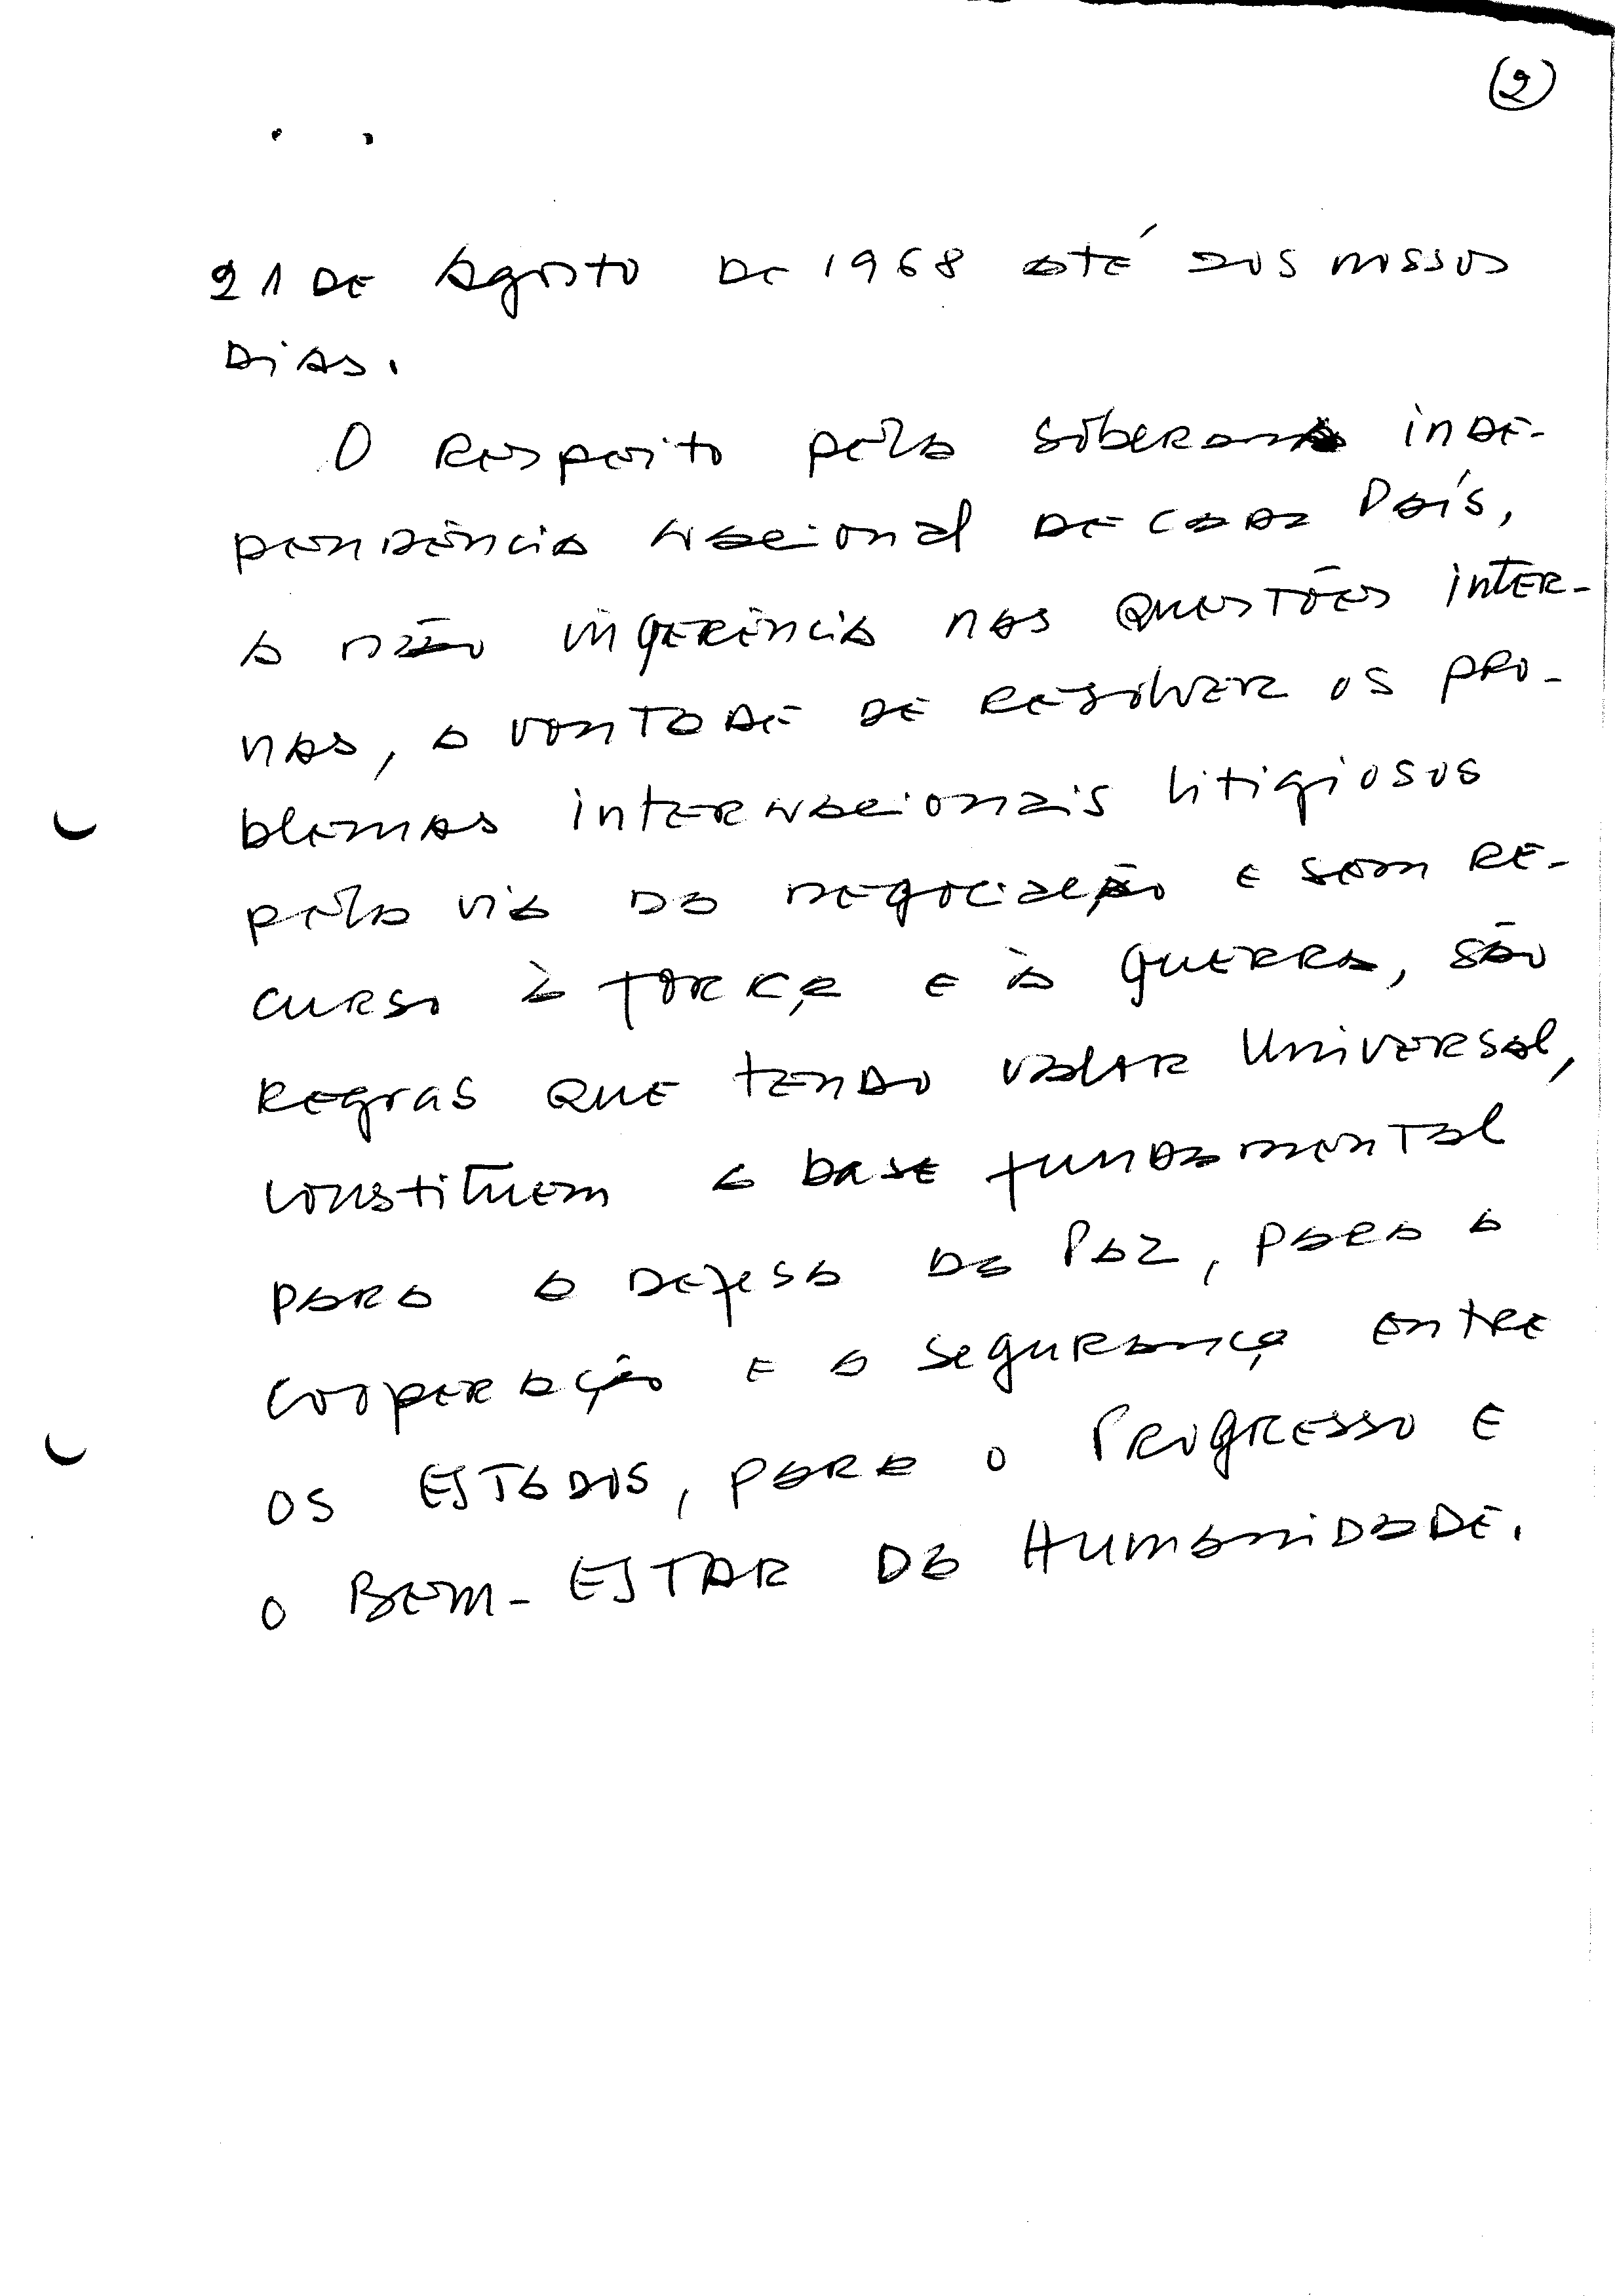 (2)
21 DE Agosto DE 1968 até aos nossos
Dias.
O Respeito pela soberana inde-
pendência Nacional de cada País,
a não ingerência nas questões inter-
nas, a vontade de resolver os pro-
blemas internacionais litigiosos
pela via da negociação e sem re-
curso à força e à guerra, são
regras que tendo valor Universal,
constituem a base fundamental
para a defesa da Paz, para a
cooperação e a segurança entre
os Estados, para o Progresso e
o BEM-ESTAR da Humanidade.